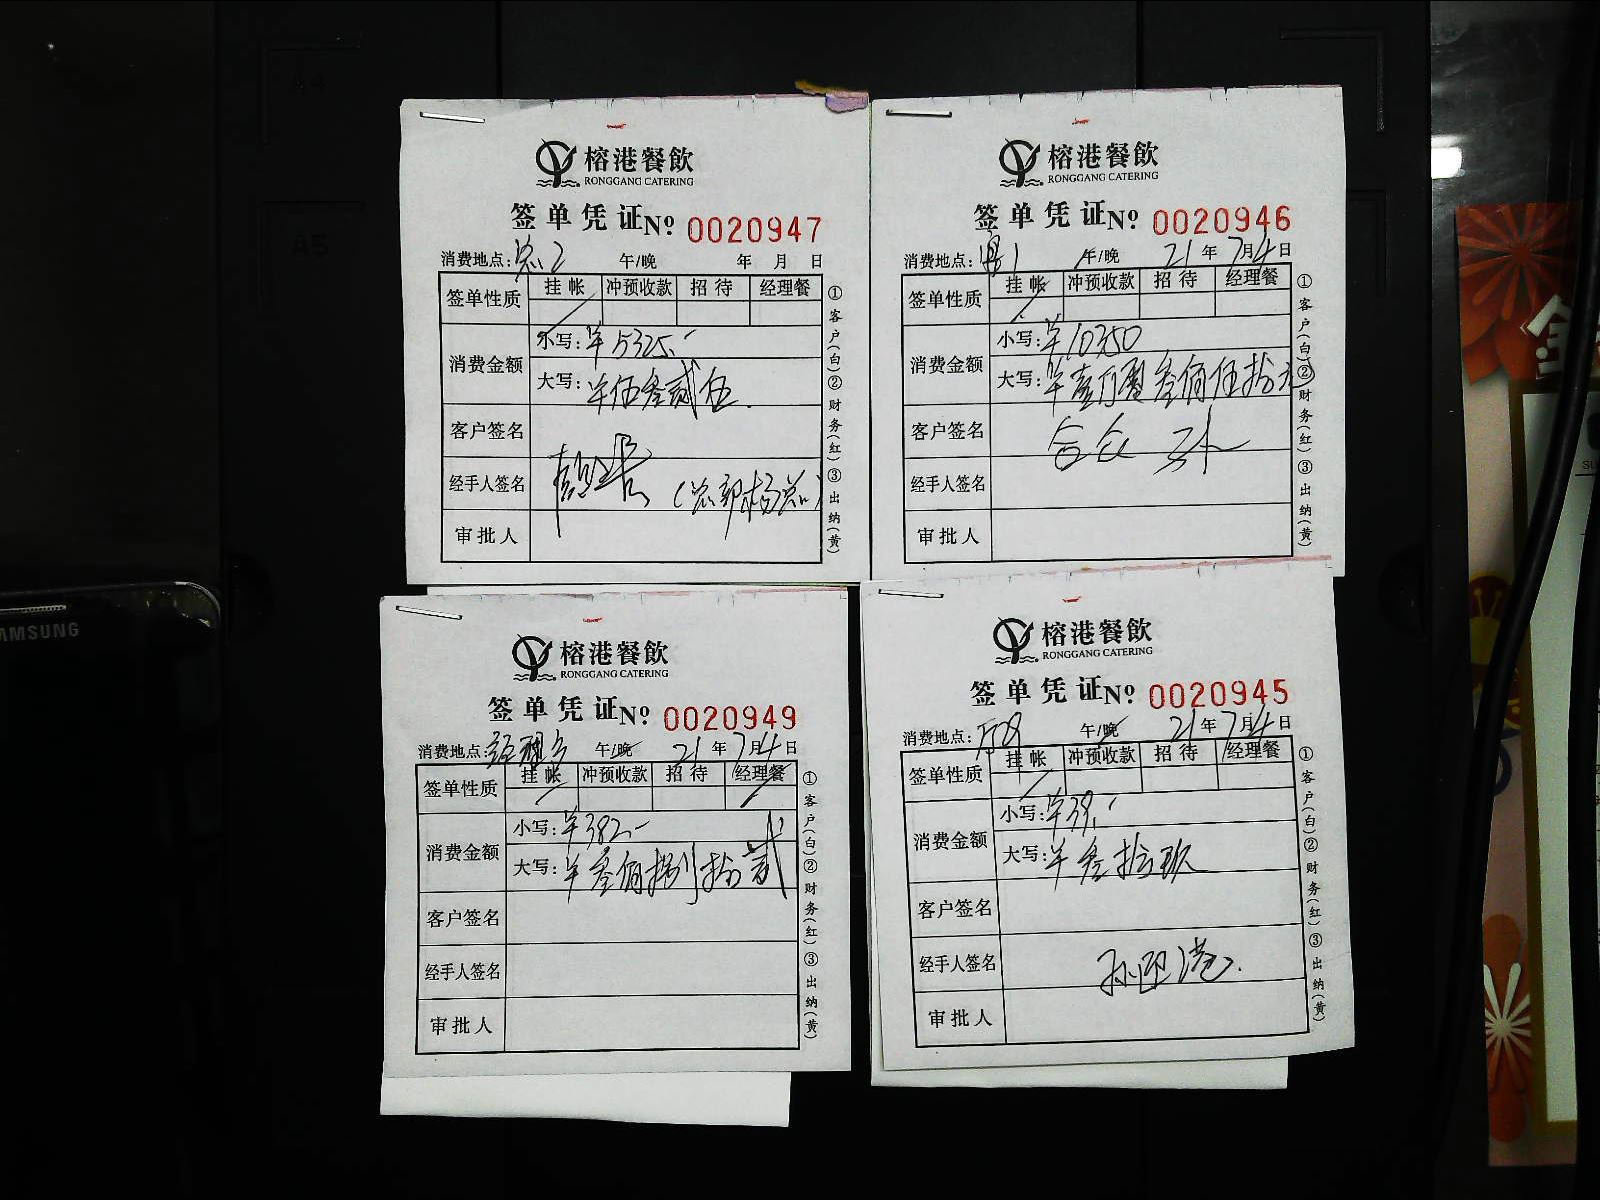 榕港餐飲
RONGGANG CATERING
签单凭证№ 0020947
消费地点: 2 午/晚 年 月 日
签单性质 挂帐 冲预收款 招待 经理餐
消费金额 小写:¥5325.-
大写:¥伍叁贰伍
客户签名
经手人签名 (总部杨总)
审批人
①客户(白)②财务(红)③出纳(黄)
榕港餐飲
RONGGANG CATERING
签单凭证№ 0020946
消费地点: 1 午/晚 21年7月4日
签单性质 挂帐 冲预收款 招待 经理餐
消费金额 小写:¥10350
大写:¥壹万零叁佰伍拾元
客户签名 合众
经手人签名
审批人
①客户(白)②财务(红)③出纳(黄)
榕港餐飲
RONGGANG CATERING
签单凭证№ 0020949
消费地点:经理 午/晚 21年7月4日
签单性质 挂帐 冲预收款 招待 经理餐
消费金额 小写:¥382.-
大写:¥叁佰捌拾贰
客户签名
经手人签名
审批人
①客户(白)②财务(红)③出纳(黄)
榕港餐飲
RONGGANG CATERING
签单凭证№ 0020945
消费地点: 午/晚 21年7月4日
签单性质 挂帐 冲预收款 招待 经理餐
消费金额 小写:¥39.-
大写:¥叁拾玖
客户签名
经手人签名 孙 港
审批人
①客户(白)②财务(红)③出纳(黄)
A4
A5
SAMSUNG